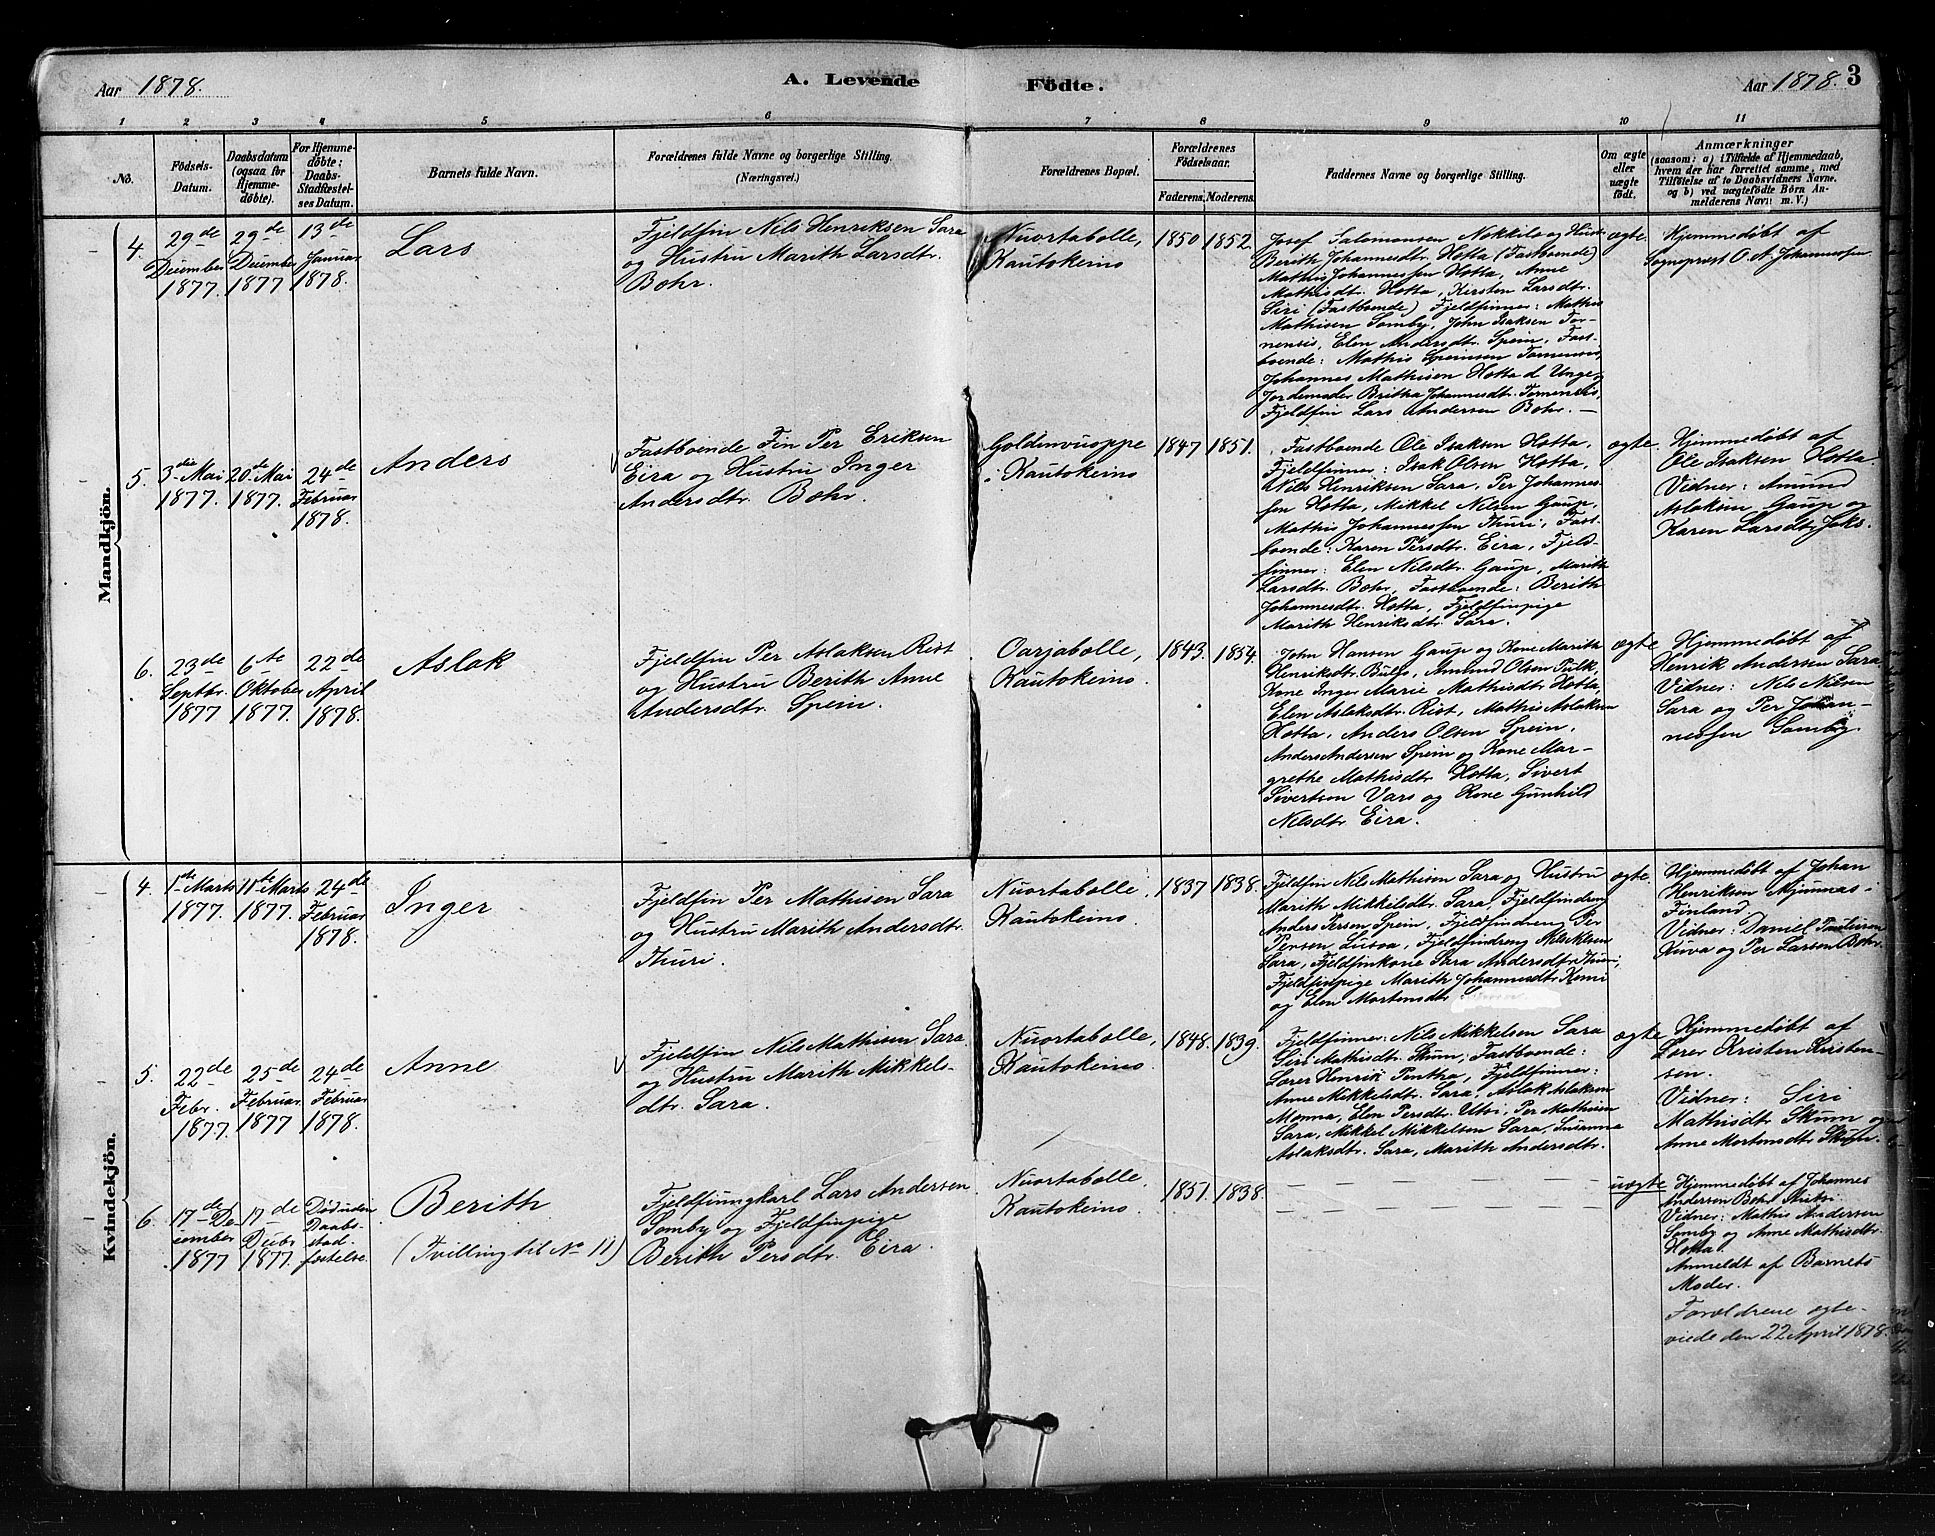 Aar 1878.
A. Levende Födte.
Aar 1878. 3
1 2 3 4 5 6 7 8 9 10 11
No.
Födsels-
Datum.
Daabsdatum
(ogsaa for
Hjemme-
döbte).
For Hjemme-
döbte:
Daabs-
Stadfæstel-
ses Datum.
Barnets fulde Navn.
Forældrenes fulde Navne og borgerlige Stilling.
(Næringsvei.)
Forældrenes Bopæl.
Forældrenes
Födselsaar.
Faderens. Moderens.
Faddernes Navne og borgerlige Stilling.
Om ægte
eller
uægte
födt.
Anmærkninger
(saasom: a) i Tilfælde af Hjemmedaab,
hvem der har forrettet samme, med
Tilföielse af to Daabsvidners Navne.
og b) ved uægtefödte Börn An-
melderens Navn m. V.)
Mandkjön.
4.
29de
December
1877.
29de
December
1877
13de
Januar
1878.
Lars
Fjeldfin Nils Henriksen Sara
og Hustru Marith Larsdtr.
Bohr.
Nuortabolle,
Kautokeino
1850 1852.
Josef Salomonsen Nekkilo og Hustr.
Berith Johannesdr. Hotta (Fastboende)
Mathis Johannessen Hotta, Anne
Mathisdtr. Hotta, Kirsten Larsdtr.
Siri (Fastboende) Fjeldfinner: Mathis
Mathisen Somby, John Isaksen Tor-
nensis, Elen Andersdtr. Spein, Fast-
boende: Mathis Speinsen Tornensis,
Johannes Mathisen Hotta d Unge,
Jordemoder Britha Johannesdtr. Tornensis,
Fjeldfin Lars Andersen Bohr. —
ægte
Hjemmedøbt af
Sognepræst O. A. Johannessen
5.
3die Mai
1877.
20de Mai
1877.
24de
Februar
1878.
Anders
Fastboende Fin Per Eriksen
Eira og Hustru Inger
Andersdtr. Bohr.
Goldinvuoppe
Kautokeino
1847 1851.
Fastboende Ole Isaksen Hotta,
Fjeldfinner: Isak Olsen Hotta,
Nils Henriksen Sara, Per Johannes-
sen Hotta, Mikkel Nilsen Gaup,
Mathis Johannessen Thuri, Fast-
boende: Karen Persdtr. Eira, Fjeld-
finner: Elen Nilsdtr. Gaup, Marith
Larsdtr. Bohr, Fastboende: Berith
Johannesdtr. Hotta, Fjeldfinpige
Marith Henriksdtr. Sara.
ægte.
Hjemmedøbt af
Ole Isaksen Hotta.
Vidner: Amund
Aslaksen Gaup og
Karen Larsdtr. Joks.
6.
23de
Septbr.
1877
6te
Oktober
1877.
22de
April
1878.
Aslak
Fjeldfin Per Aslaksen Rist
og Hustru Berith Anne
Andersdtr. Spein.
Oarjabolle,
Kautokeino.
1843. 1854.
John Hansen Gaup og Kone Marith
Henriksdtr. Buljo, Amund Olsen Pulk,
Kone Inger Marie Mathisdtr Hotta,
Elen Aslaksdtr. Rist, Mathis Aslaksen
Hotta, Anders Olsen Spein,
Anders Andersen Spein og Kone Mar-
grethe Mathisdtr Hotta, Sivert
Sivertsen Vars og Kone Gunhild
Nilsdtr. Eira.
ægte
Hjemmedøbt af
Henrik Andersen Sara
Vidner: Nils Nilsen
Sara og Per Johan-
nessen Somby.
Kvindekjön.
4.
1ste Marts
1877.
11te Marts
1877.
24de
Februar
1878.
Inger
Fjeldfin Per Mathisen Sara
og Hustru Marith Andersdtr.
Thuri.
Nuortabolle.
Kautokeino
1837 1838.
Fjeldfin Nils Mathisen Sara og Hustru
Marith Mikkelsdtr. Sara, Fjeldfindreng
Anders Persen Spein, Fjeldfindreng Per
Persen Lusoa, Fjeldfindreng
Sara, Fjeldfinkone Sara Andersdtr Thuri,
Fjeldfinpige Marith Johannesdtr Kemi
og Elen Mortensdtr
ægte.
Hjemmedøbt af Johan
Henriksen
Finland
Vidner: Daniel
Kuva og Per Larsen Bohr.
5.
22de
Febr.
1877.
25de
Februar
1877
24de
Februar
1878.
Anne
Fjeldfin Nils Mathisen Sara
og Hustru Marith Mikkels-
dtr. Sara.
Nuortabolle,
Kautokeino
1848. 1839.
Fjeldfinner: Nils Mikkelsen Sara
Siri Mathisdtr. Skum; Fastboende:
Lærer Henrik Pentha, Fjeldfinner:
Anne Mikkelsdtr. Sara, Aslak Aslaksen
Monna, Elen Persdtr. Utsi, Per Mathisen
Sara, Mikkel Mikkelsen Sara, Susanna
Aslaksdtr. Sara, Marith Andersdtr.
ægte
Hjemmedøbt af
Lærer Kristen Kristen-
sen.
Vidner: Siri
Mathisdtr Skum og
Anne Mortensdtr Skum.
6.
17de De-
cember
1877
17de
Decbr
1877.
Død uden
Daabs-
stad-
fæstelse.
Berith
(Tvilling til No 11)
Fjeldfinungkarl Lars Andersen
Somby og Fjeldfinpige
Berith Persdtr. Eira.
Nuortabolle
Kautokeino.
1851. 1838.
uægte
Hjemmedøbt af Johannes
Andersen Bohr
Vidner: Mathis Andersen
Somby og Anne Mathisdtr.
Hotta.
Anmeldt af Barnets
Moder.
Forældrene ægte-
viede den 22 April 1878.